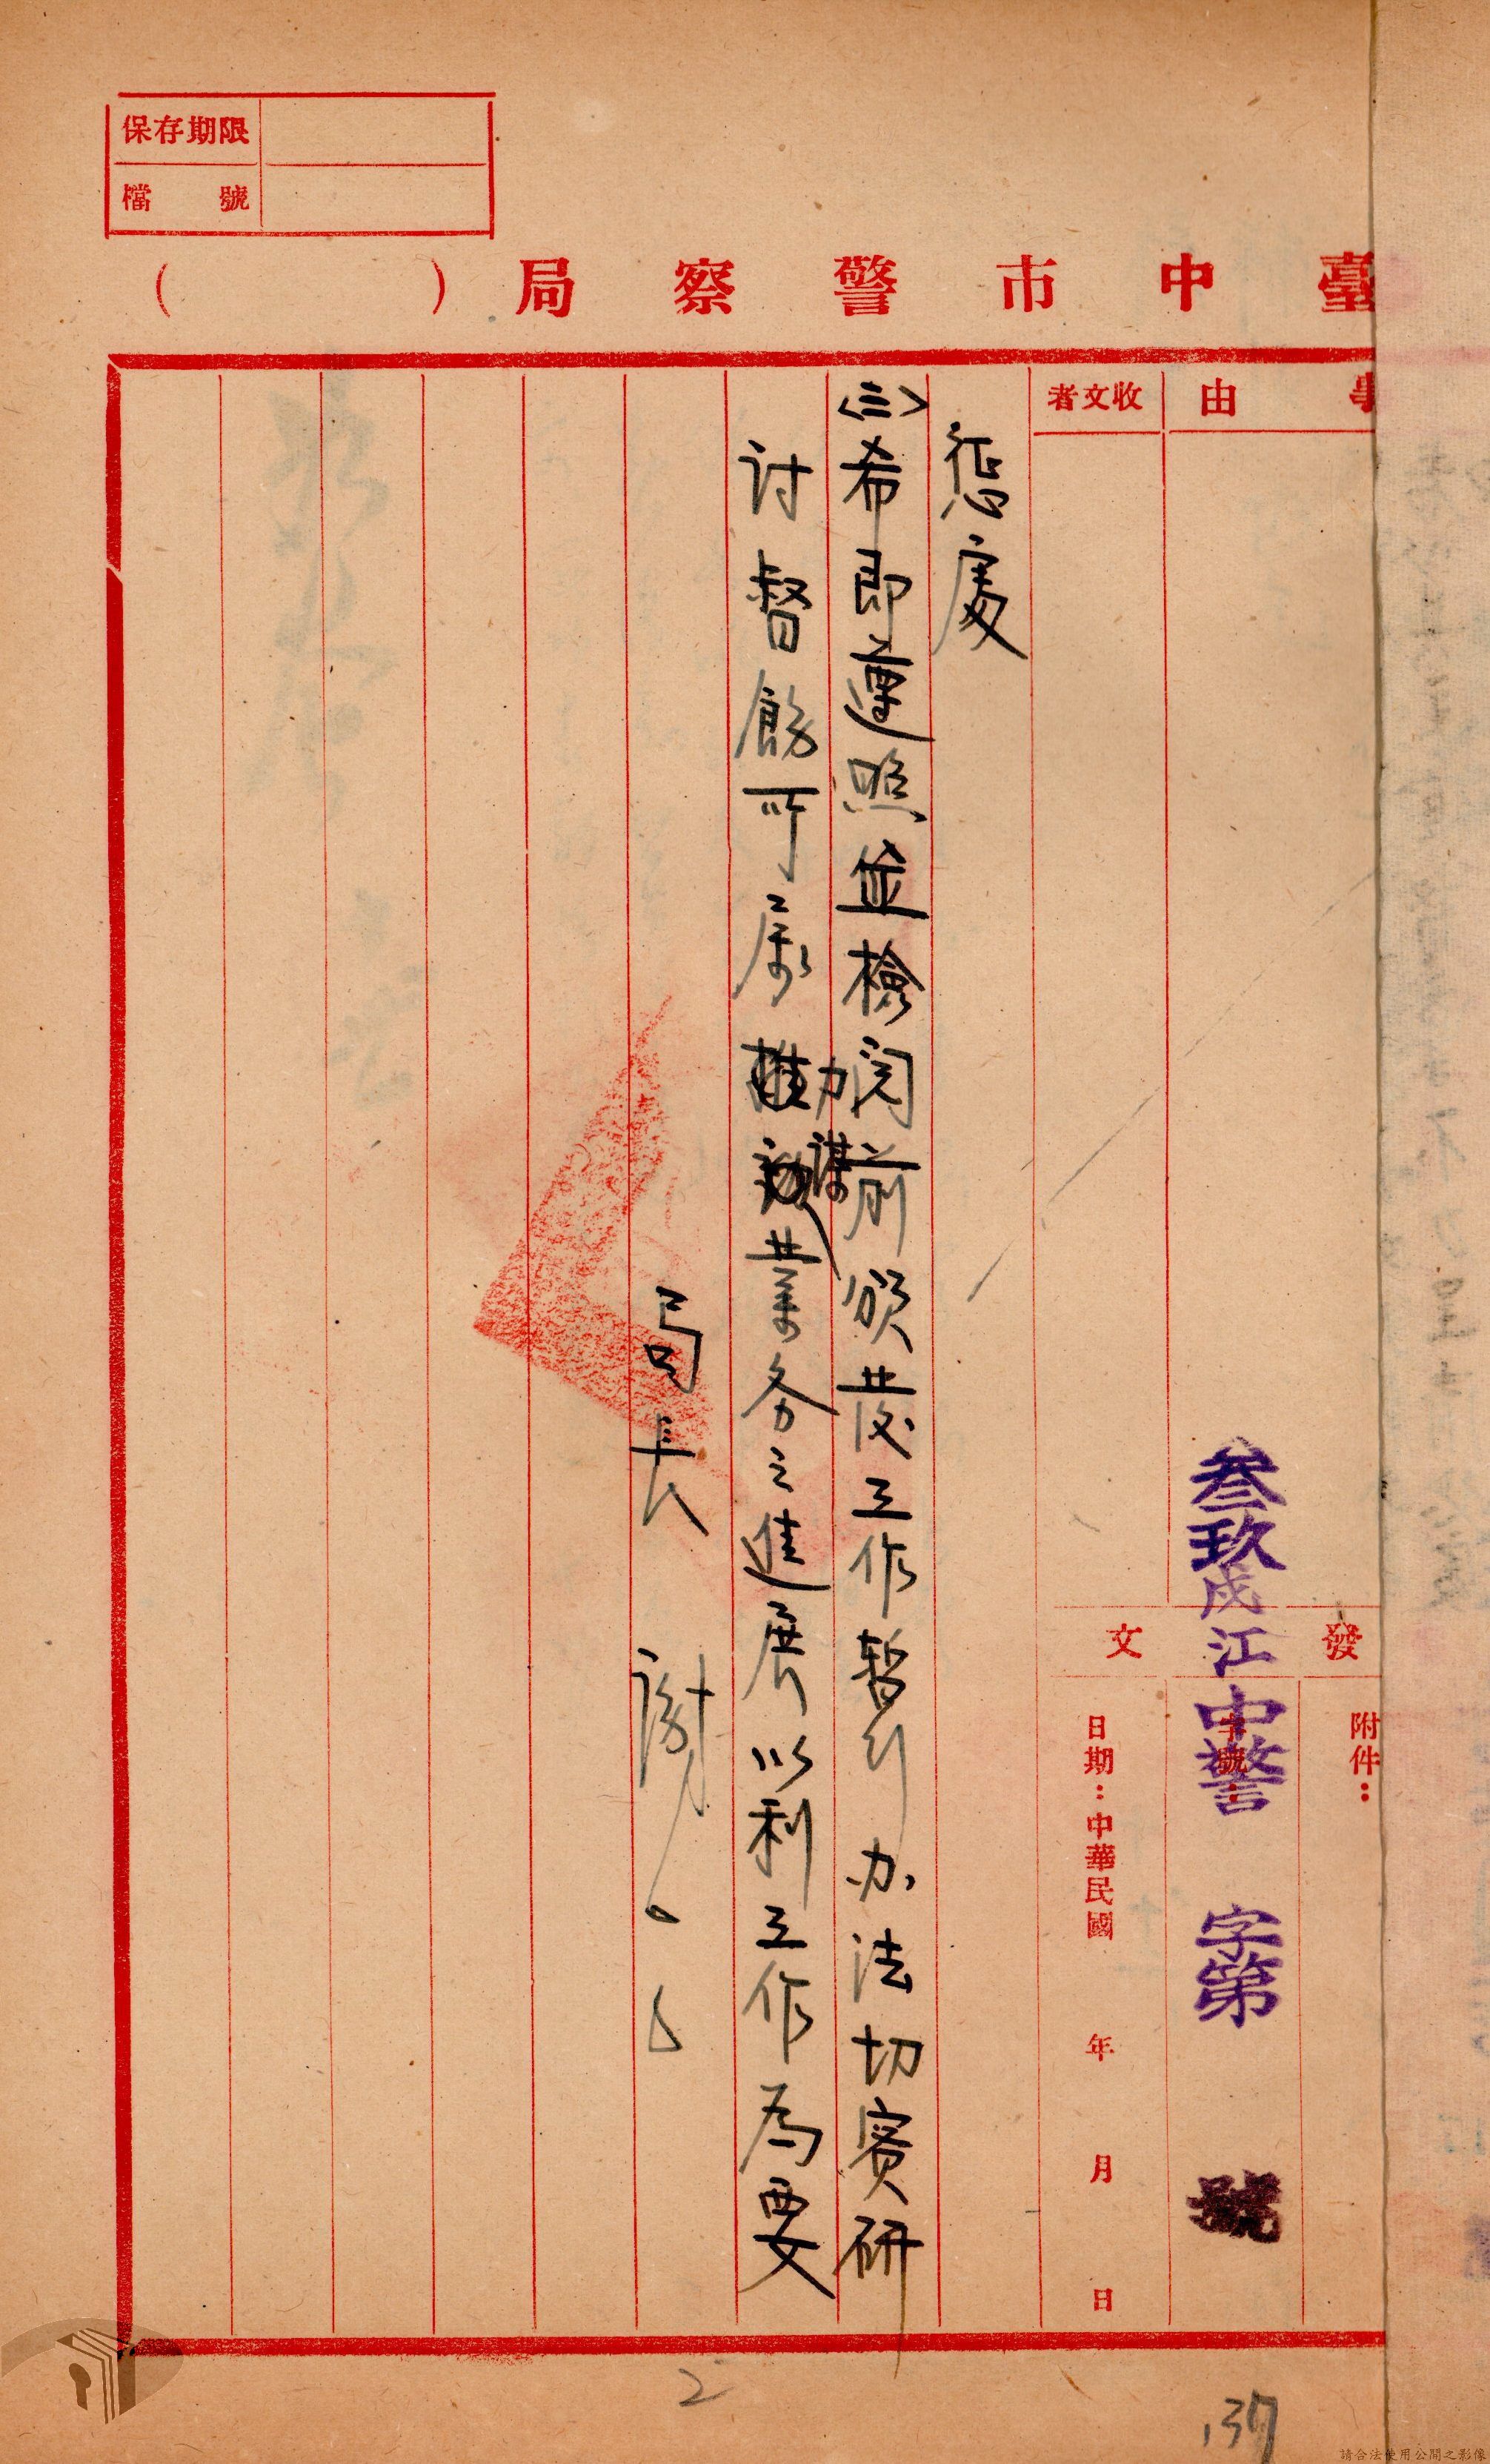 保存期限
檔號
臺中市警察局（　　）
事由
收文者
發文
附件：
字號：
叁玖戌江中警　字第　號
日期：中華民國　年　月　日
懲處
㈢希即遵照並檢閱前頒發工作暫行办法切實研
討督飭所屬力謀業务之進展以利工作為要
局長　謝
2
137
請合法使用公開之影像